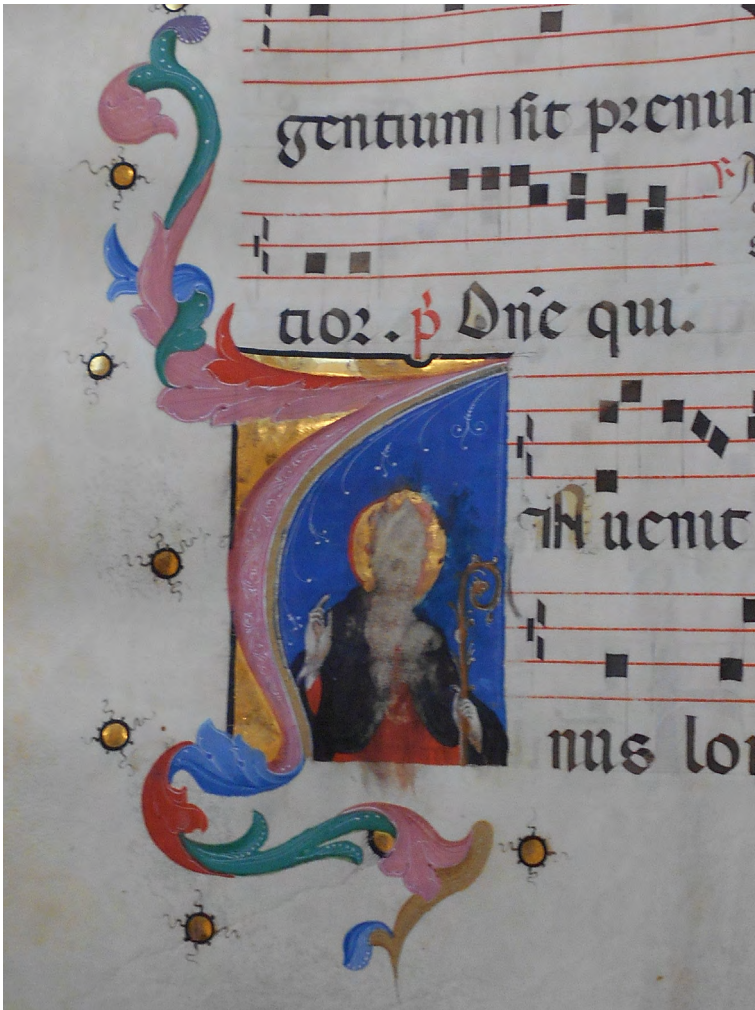 gentium sit prenun
tior. p̄ Dn̄e qui.
Iuuenit
nus lon